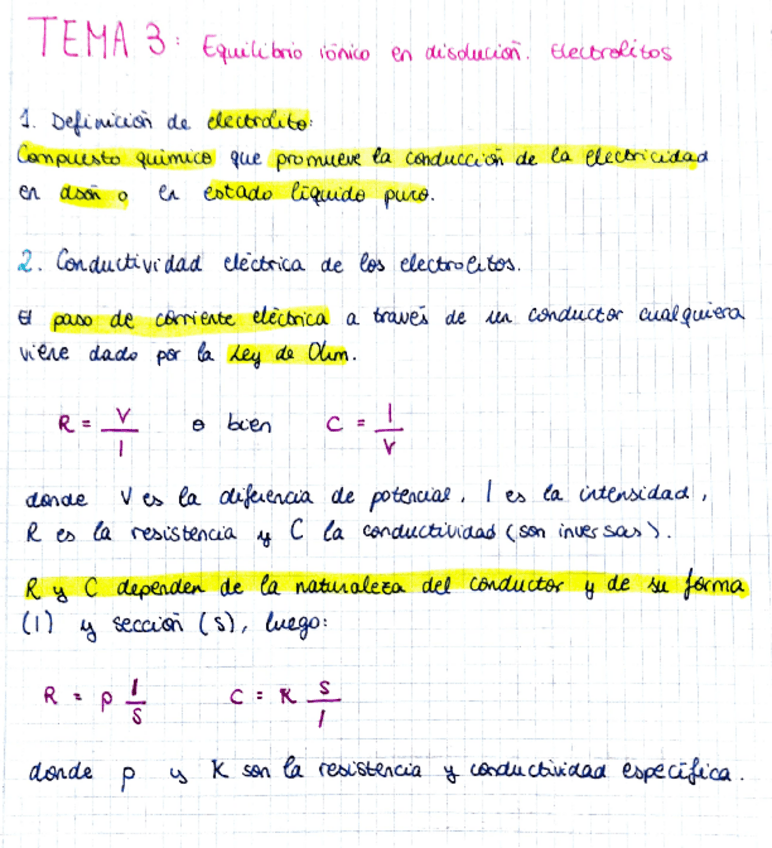 TEMA 3: Equilibrio iónico en disolución. Electrolitos
1. Definición de electrolito:
Compuesto químico que promueve la conducción de la electricidad
en dsón o en estado líquido puro.
2. Conductividad eléctrica de los electrolitos.
El paso de corriente eléctrica a través de un conductor cualquiera
viene dado por la Ley de Ohm.
R = V/I o bien C = I/V
donde V es la diferencia de potencial, I es la intensidad,
R es la resistencia y C la conductividad (son inversas).
R y C dependen de la naturaleza del conductor y de su forma
(l) y sección (s), luego:
R = ρ l/s C = K s/l
donde ρ y K son la resistencia y conductividad específica.